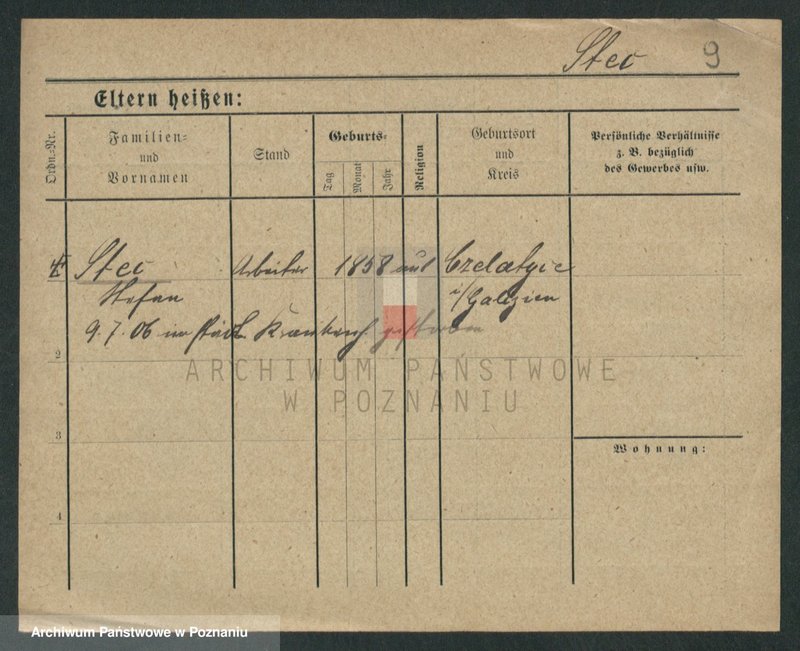 Stec 9
Eltern heißen:
Ordn.-Nr.
Familien-
und
Vornamen
Stand
Geburts-
Tag
Monat
Jahr
Religion
Geburtsort
und
Kreis
Persönliche Verhältnisse
z. B. bezüglich
des Gewerbes usw.
Stec Arbeiter 1858
Stefan i/Galizien
9.7.06 im städt. gestorben
2
3
4
Wohnung:
ARCHIWUM PAŃSTWOWE
W POZNANIU
Archiwum Państwowe w Poznaniu